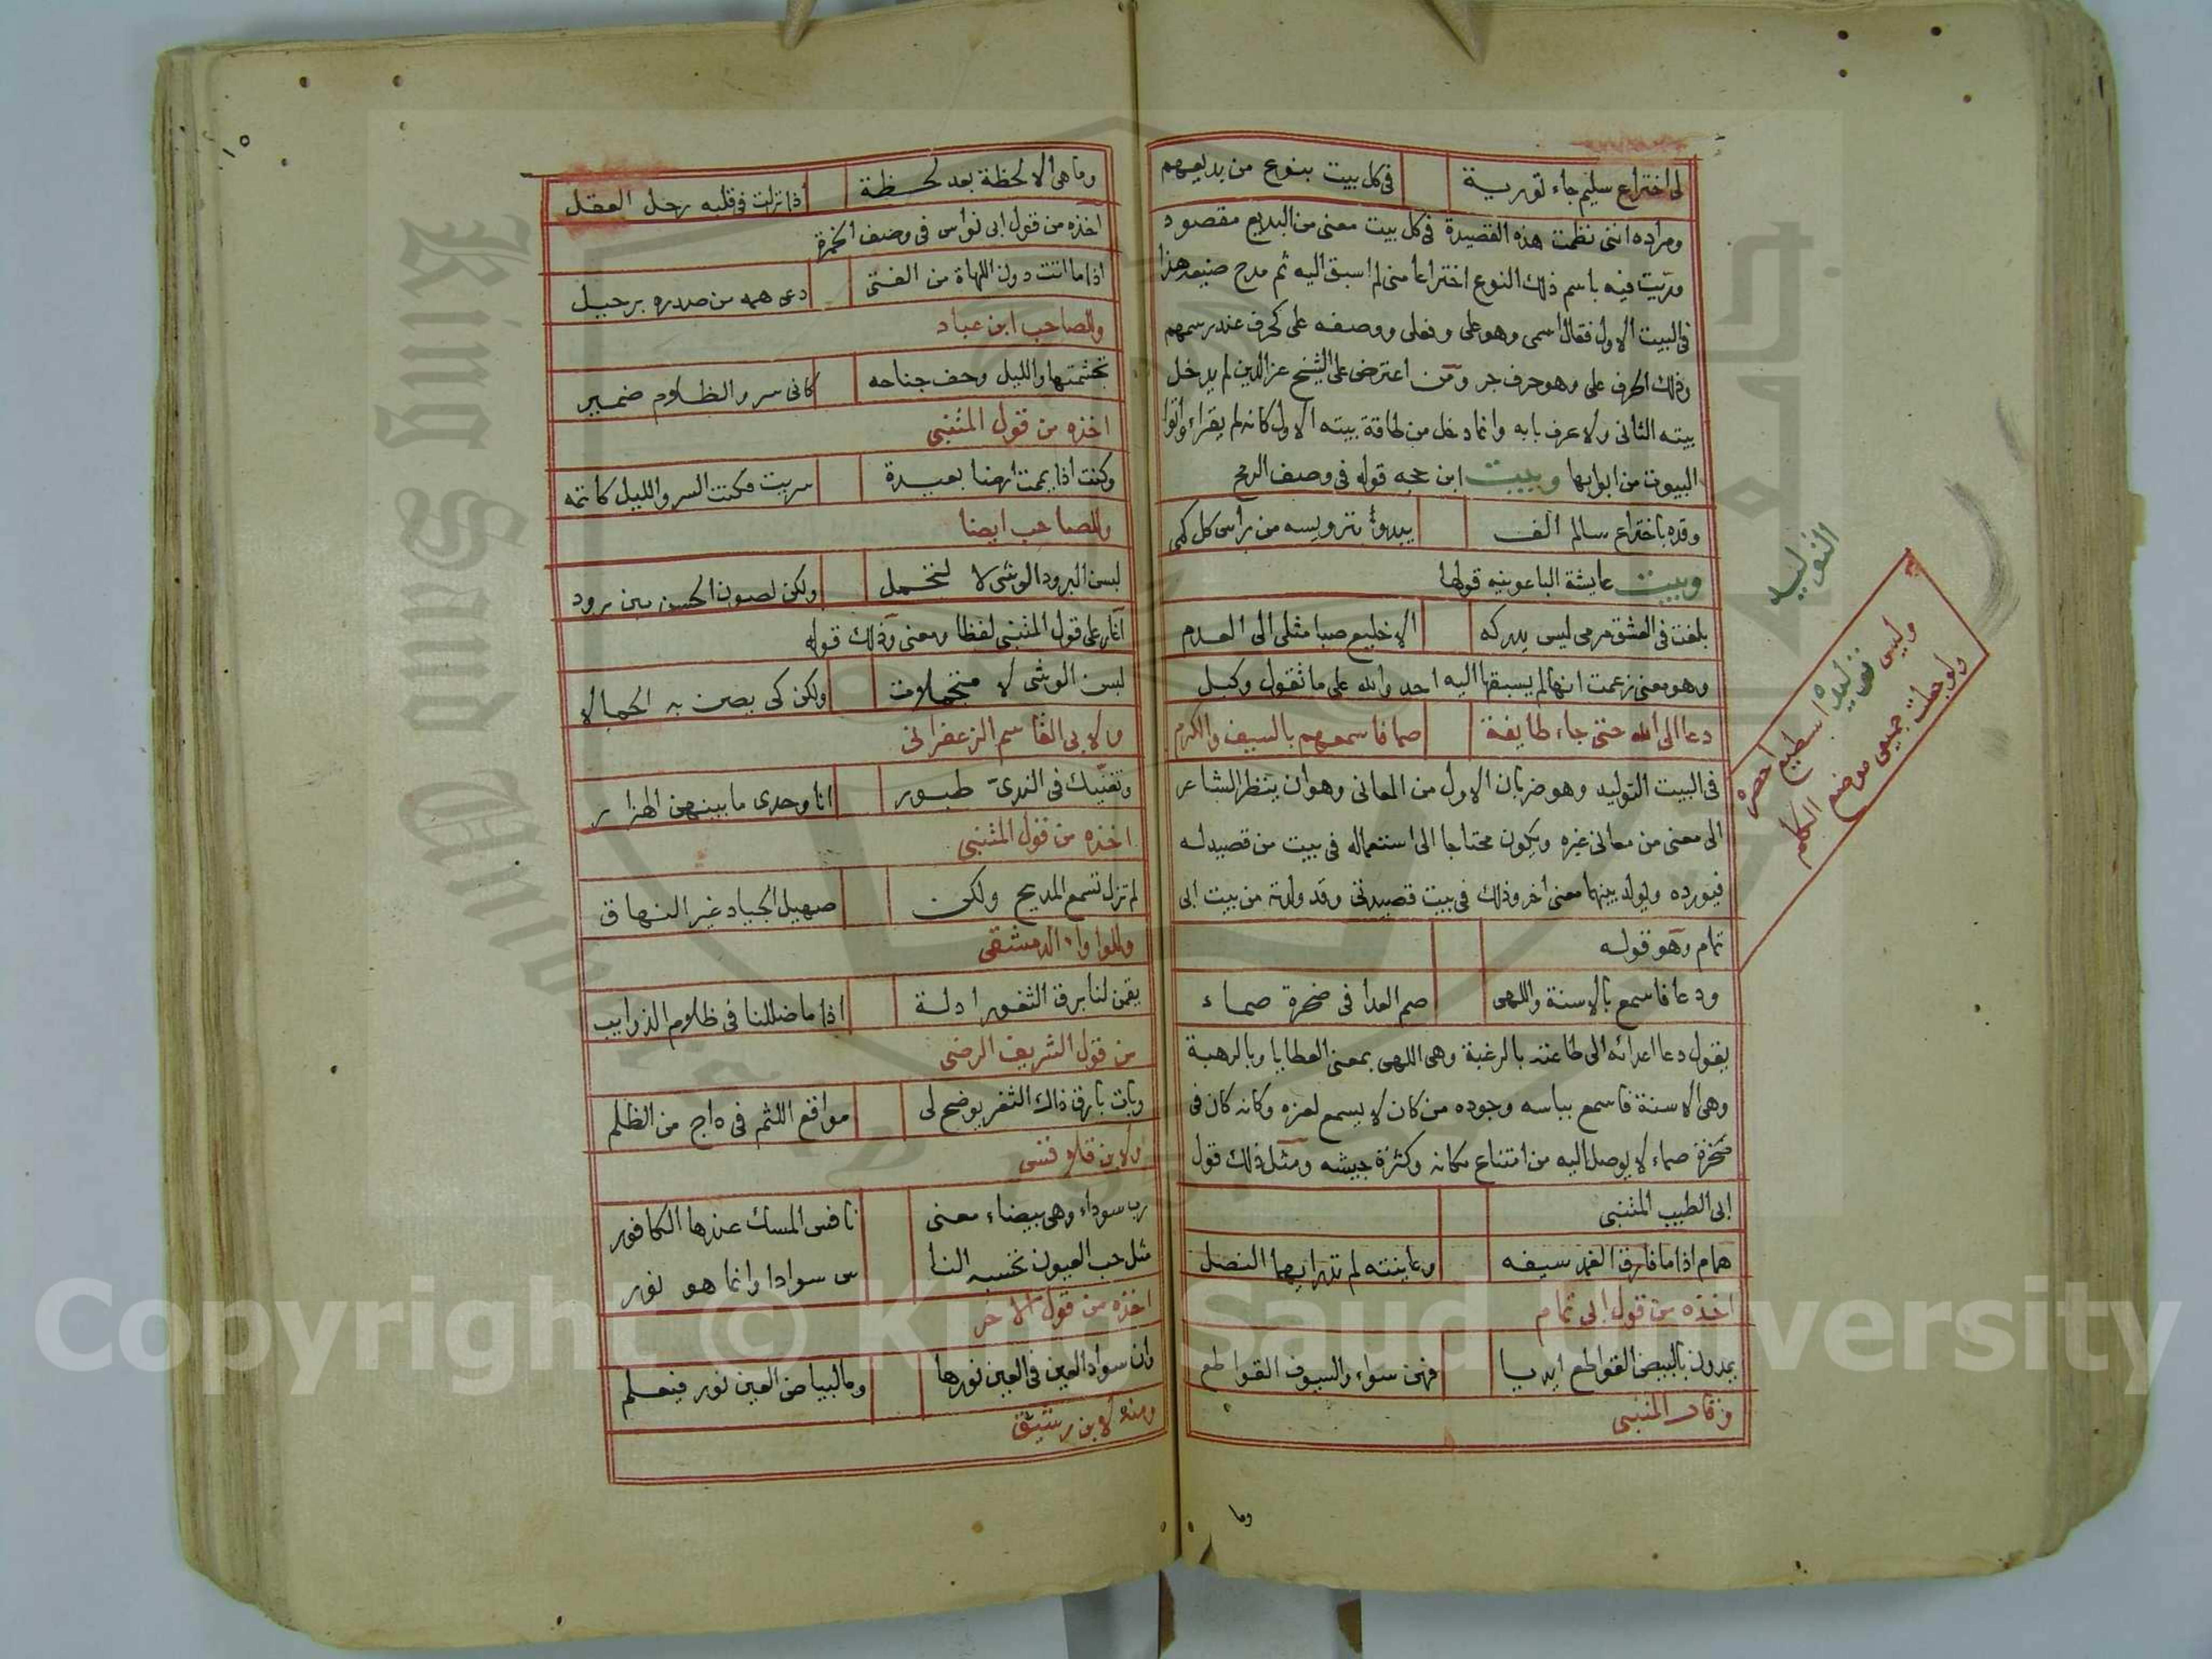 لى اختراع سليم جاء تورية في كل بيت بنوع من بديعهم
ومراده انني نظمت هذه القصيدة في كل بيت معنى من البديع مقصود
وريت فيه باسم ذلك النوع اختراعا مني لم اسبق اليه ثم مدح صنيعه هذا
في البيت الاول فقال اسمى وهو على وفعلى ووصفه على كحرف عند رسمهم
وذلك الحرف على وهو حرف جر ومن اعترض على الشيخ عز الدين لم يدخل
بيته الثاني ولا عرف بابه وانما دخل من طاقة بيته الاول كانه لم يقراء وأتوا
البيوت من ابوابها وبيت ابن حجه قوله في وصف الرمح
وقده باختراع سالم الف يبدو بترويسه من راس كل كمى
وبيت عايشة الباعونيه قولها
بلغت في العشق مرمى ليس يدركه الا خليع صبا مثلى الى العدم
وهو معنى زعمت انها لم يسبقها اليه احد والله على ما نقول وكيل
دعا الى الله حتى جاء طايفة صما فاسمعهم بالسيف والكرم
في البيت التوليد وهو ضربان الاول من المعاني وهو ان ينظر الشاعر
الى معنى من معاني غيره ويكون محتاجا الى استعماله في بيت من قصيدله
فيورده ويولد بينهما معنى اخر وذلك في بيت قصيدتي وقد ولدته من بيت ابي
تمام وهو قوله
ودعا فاسمع بالاسنة واللهى صم العدا في صخرة صماء
يقول دعا اعدائه الى طاعته بالرغبة وهى اللهى بمعنى العطايا وبالرهبة
وهى الاسنة فاسمع بباسه وجوده من كان لا يسمع لعزه وكانه كان في
صخرة صماء لا يوصل اليه من امتناع مكانه وكثرة جيشه ومثل ذلك قول
ابى الطيب المتنبى
همام اذا ما فارق الغمد سيفه وعاينته لم تدر ايهما النصل
اخذه من قول ابى تمام
يمدون بالبيض القواطع ايديا فهن سواء والسيوف القواطع
وقال المتنبى
وما
التوليد
وليس توليده اسطيع احصره
ولو جعلت جميعى موضع الكلم
١٥
وما هى الا لحظة بعد لحظة اذا نزلت في قلبه رحل العقل
اخذه من قول ابى نواس في وصف الخمرة
اذا ما اتت دون اللهاة من الفتى دعى همه من صدره برحيل
وللصاحب ابن عباد
تجشمتها والليل وحف جناحه كانى سر والظلام ضمير
اخذه من قول المتنبى
وكنت اذا يممت ارضا بعيدة سريت فكنت السر والليل كاتمه
وللصاحب ايضا
لبسن البرود الوشى لا لتجمل ولكن لصون الحسن بين برود
اغار على قول المتنبى لفظا ومعنى وذلك قوله
لبسن الوشى لا متجملات ولكن كى يصن به الجمالا
ولابى القاسم الزعفرانى
وتغنيك في الندى طيور انا وحدى ما بينهن الهزار
اخذه من قول المتنبى
لم تزل تسمع المديح ولكن صهيل الجياد غير النهاق
وللوا واء الدمشقى
يقمن لنا برق الثغور ادلة اذا ما ضللنا في ظلام الذوايب
من قول الشريف الرضى
وبات بارق ذاك الثغر يوضح لى مواقع اللثم في داج من الظلم
ولابن قلاقس
رب سوداء وهى بيضاء معنى نافس المسك عندها الكافور
مثل حب العيون تحسبه النا س سوادا وانما هو نور
اخذه من قول الاخر
وان سواد العين في العين نورها وما لبياض العين نور فيعلم
ومنه لابن رشيق
King Saud University
Copyright © King Saud University